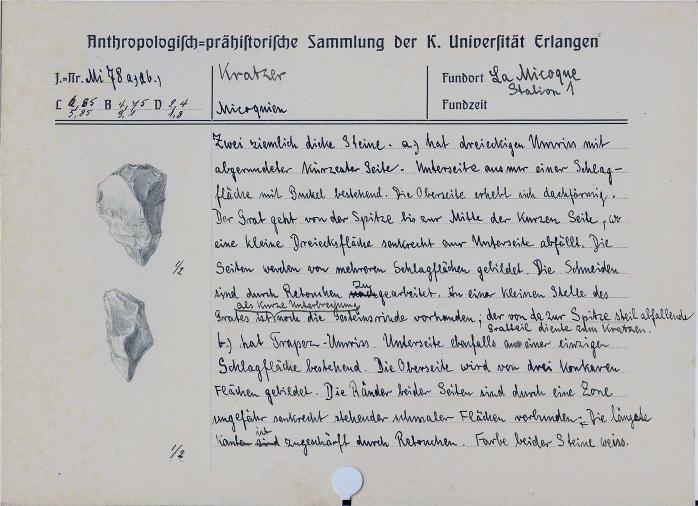 Anthropologisch-prähistorische Sammlung der K. Universität Erlangen
J.-Nr. Mi 78 a, b.)
Kratzer
Fundort La Micoque
Station 1
L 6,85 B 4,75 D 2,4
5,85 3,1 1,8
Micoquien
Fundzeit
Zwei ziemlich dicke Steine. a.) hat dreieckigen Umriss mit
abgerundeter kürzester Seite. Unterseite aus nur einer Schlag-
fläche mit Buckel bestehend. Die Oberseite erhebt sich dachförmig.
Der Grat geht von der Spitze bis zur Mitte der kurzen Seite, wo
eine kleine Dreiecksfläche senkrecht zur Unterseite abfällt. Die
Seiten werden von mehreren Schlagflächen gebildet. Die Schneiden
sind durch Retouchen zugearbeitet. An einer kleinen Stelle des
als kurze Unterbrechung
Grates ist noch die Gesteinsrinde vorhanden; der von da zur Spitze steil abfallende
Gratteil diente zum Kratzen.
b.) hat Trapez-Umriss. Unterseite ebenfalls aus einer einzigen
Schlagfläche bestehend. Die Oberseite wird von drei konkaven
Flächen gebildet. Die Ränder beider Seiten sind durch eine Zone
ungefähr senkrecht stehender schmaler Flächen verbunden. Die längste
Kanten sind ist zugeschärft durch Retouchen. Farbe beider Steine weiss.
1/2
1/2